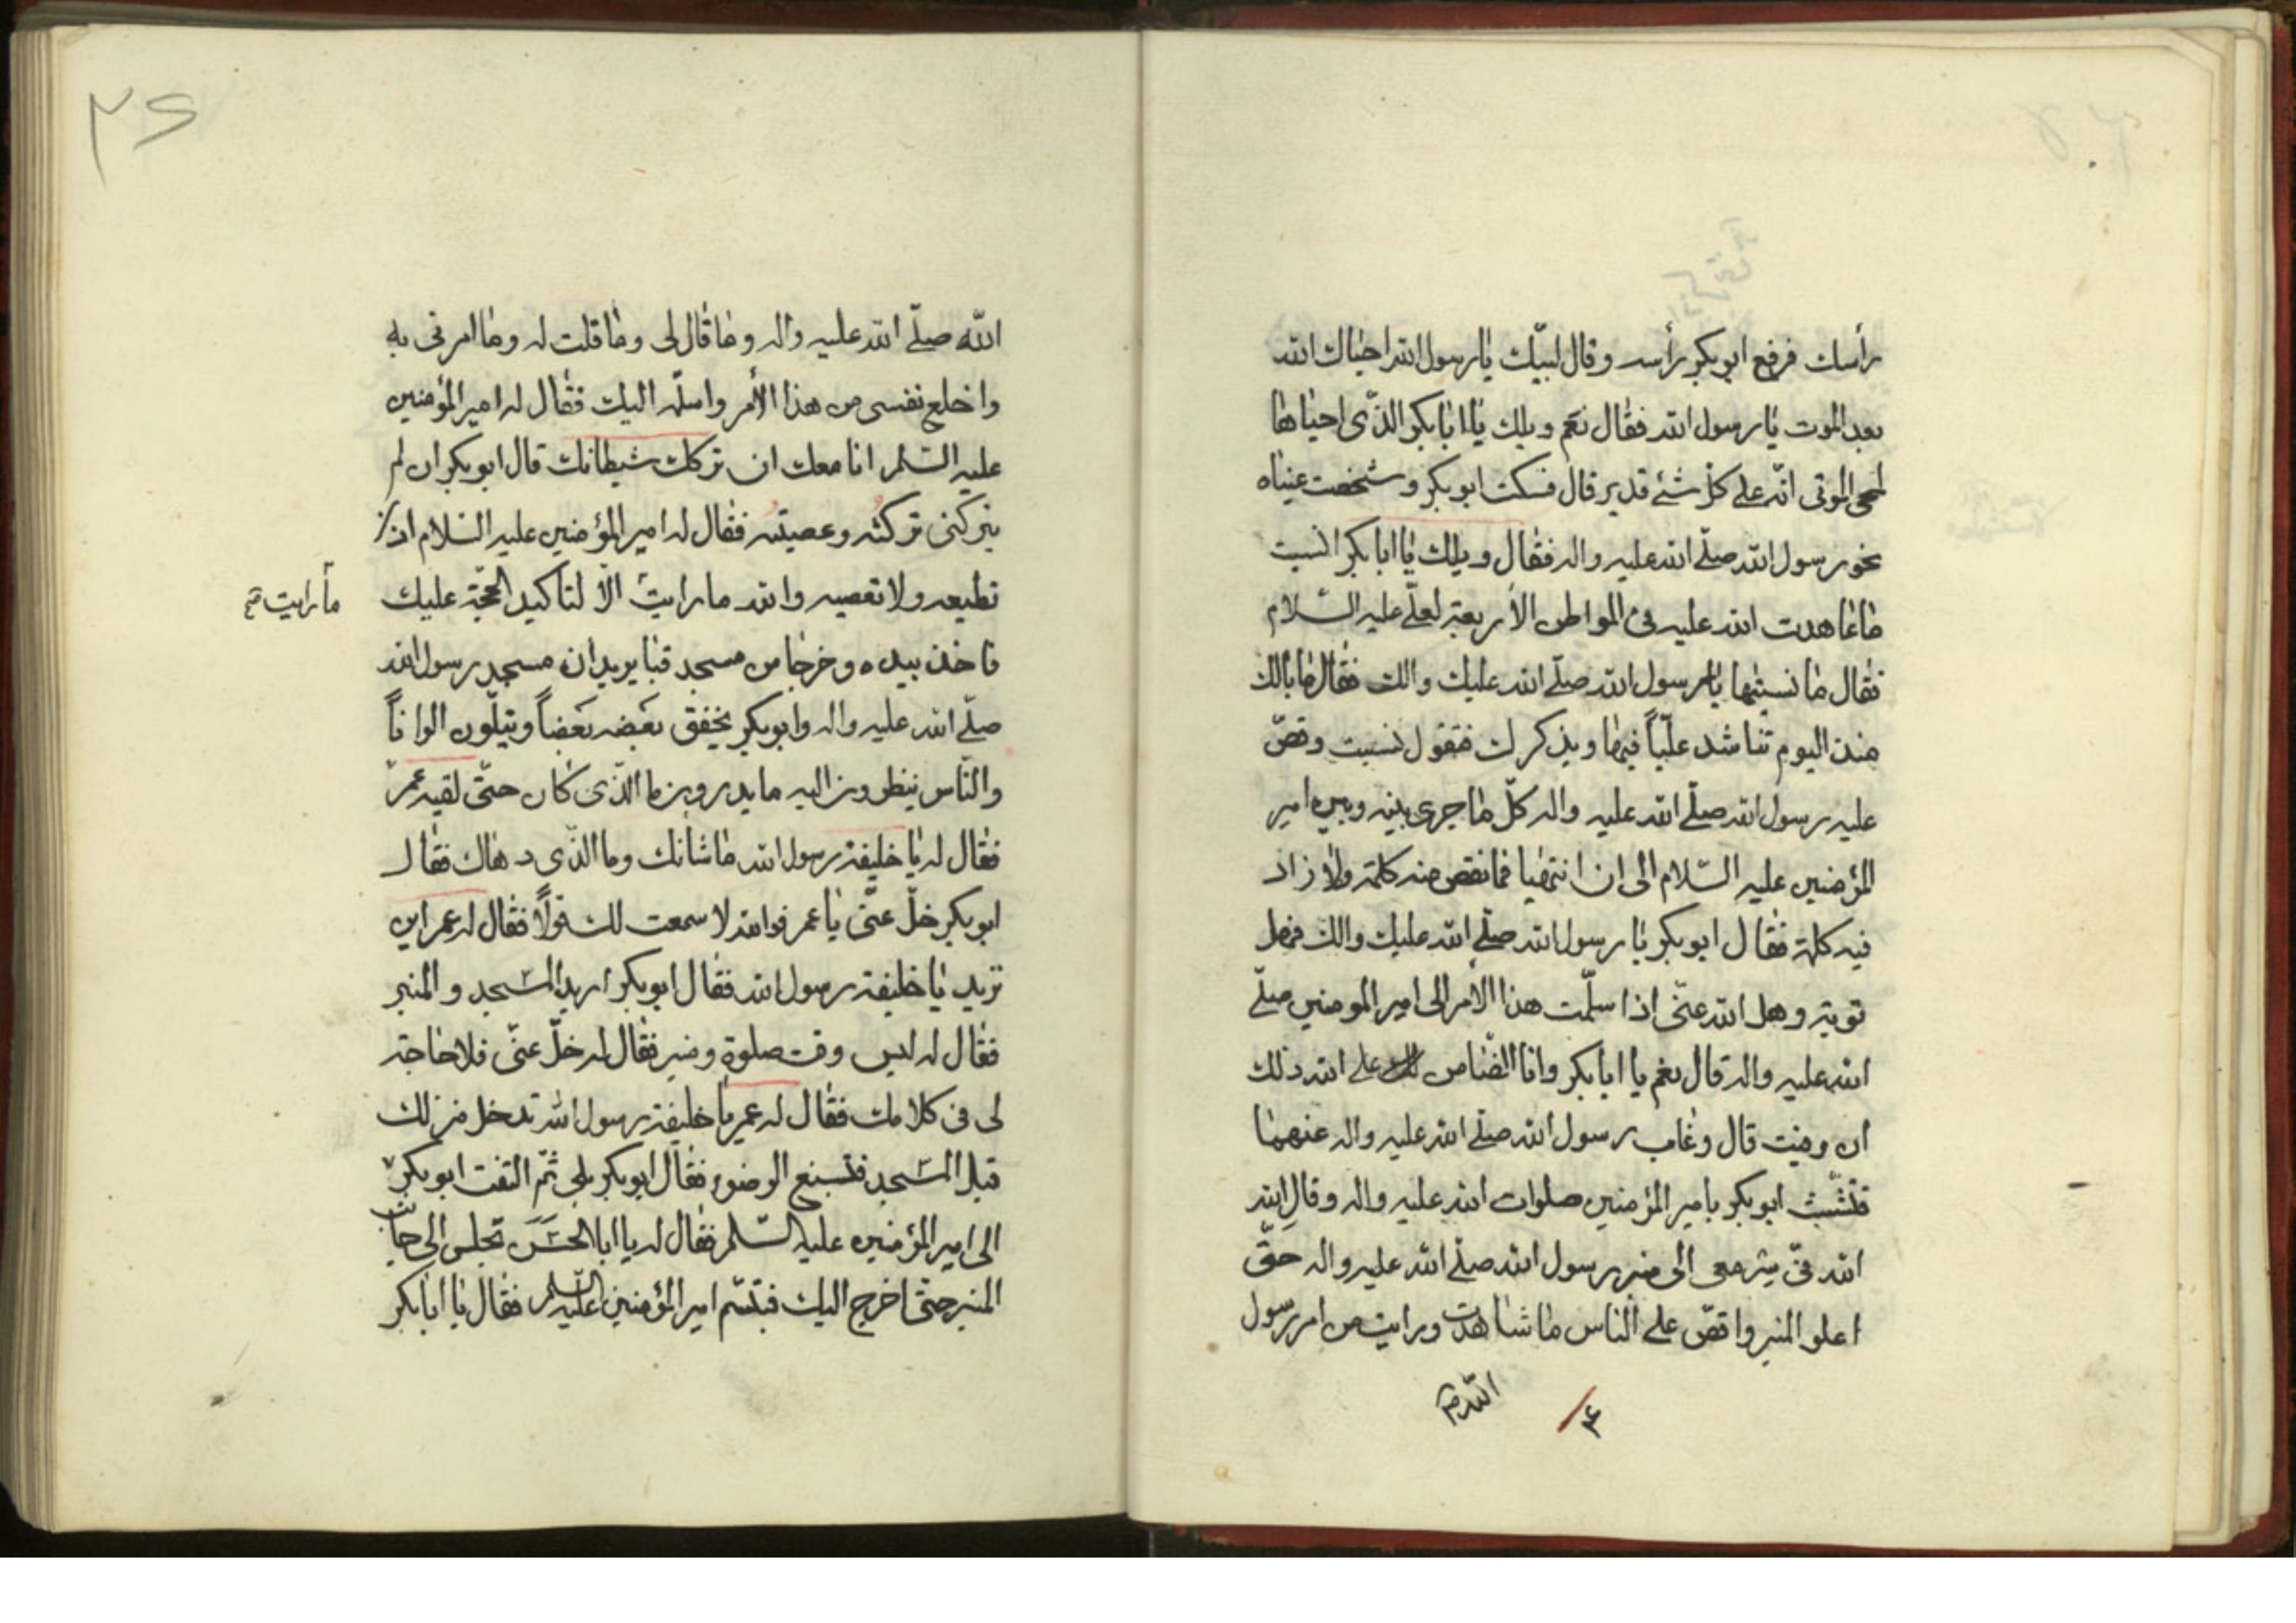 رأسك فرفع ابوبكر رأسه وقال لبيّك يا رسول الله احياك الله
بعد الموت يا رسول الله فقال نعم ويلك يا ابا بكر الذّى احياها
لمحى الموتى انّه على كلّ شئ قدير قال فسكت ابوبكر وشخصت عيناه
نحو رسول الله صلّى الله عليه واله فقال ويلك يا ابا بكر انسيت
ما عاهدت الله عليه فى المواطن الأربعة لعلّى عليه السّلام
فقال ما نسيتها يا رسول الله صلّى الله عليك والك فقال ما بالك
منذ اليوم تناشد عليّاً فيها ويذكر لك فتقول نسيت وقصّ
عليه رسول الله صلّى الله عليه واله كلّ ما جرى بينه وبين امير
المؤمنين عليه السّلام الى ان انتهيا فما نقص منه كلمة ولا زاد
فيه كلمة فقال ابوبكر يا رسول الله صلّى الله عليك والك فهل
توبة وهل الله عنّى اذا سلّمت هذا الأمر الى امير المومنين صلّى
الله عليه واله قال نعم يا ابا بكر وانا الضّامن لك على الله ذلك
ان وفيت قال وغاب رسول الله صلّى الله عليه واله عنهما
فتشبّث ابوبكر بامير المؤمنين صلوات الله عليه واله وقال الله
الله فىّ سر معى الى منبر رسول الله صلّى الله عليه واله حتّى
اعلو المنبر واقصّ على الناس ما شاهدت ورايت من امر رسول
الله
الله صلّى الله عليه واله وما قال لى وما قلت له وما امرنى به
واخلع نفسى من هذا الأمر واسلّمه اليك فقال له امير المؤمنين
عليه السّلم انا معك ان تركك شيطانك قال ابوبكر ان لم
يتركنى تركته وعصيته فقال له امير المؤمنين عليه السّلام اذا
تطيعه ولا تعصيه والله ما رايت الّا لتاكيد الحجّة عليك
ما رايت
فاخذ بيده وخرجا من مسجد قبا يريدان مسجد رسول الله
صلّى الله عليه واله وابوبكر يخفق بعضه بعضاً ويتلّون الواناً
والنّاس ينظرون اليه ما يدرون ما الّذى كان حتّى لقيه عمر
فقال له يا خليفة رسول الله ما شانك وما الذّى دهاك فقال
ابوبكر خلّ عنّى يا عمر فوالله لا سمعت لك قولاً فقال له عمر اين
تريد يا خليفة رسول الله فقال ابوبكر اريد المسجد والمنبر
فقال له ليس وقت صلوة ومنبر فقال له خلّ عنّى فلا حاجة
لى فى كلامك فقال له عمر يا خليفة رسول الله تدخل منزلك
قبل المسجد فتسبغ الوضوء فقال ابوبكر بلى ثمّ التفت ابوبكر
الى امير المؤمنين عليه السّلم فقال له يا ابا الحسن تجلس الى جانب
المنبر حتّى اخرج اليك فتبسّم امير المؤمنين عليه السّلم فقال يا ابا بكر